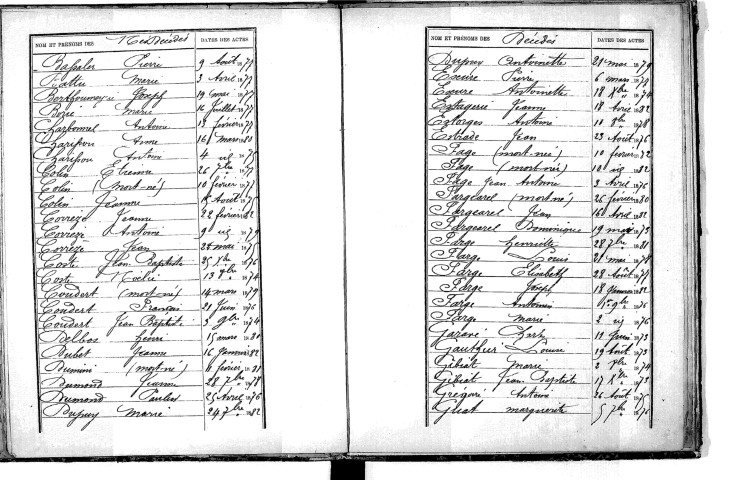 NOM ET PRÉNOMS DES Décédés DATES DES ACTES
Bassaler Pierre 9 Août 1879
Marie 3 Avril 1873
Joseph 19 mai 1875
Borie Marie 16 Juillet 1877
Charbonnel Antoine 13 février 1877
Charissou Anne 16 mars 1880
Charissou Antoine 4 id 1875
Colin Etienne 26 7bre 1877
Colin (mort-né) 10 février 1877
Colin Jeanne 18 Août 1875
Corrèze Jeanne 22 février 1882
Corrèze Antoine 9 id 1879
Corrèze Jean 28 mai 1875
Coste Jean Baptiste 25 Xbre 1876
Coste Noélie 13 1874
Coudert (mort-né) 14 mars 1879
Coudert François 21 Juin 1876
Coudert Jean Baptiste 3 9bre 1874
Delbos 15 mars 1880
Dubot Jeanne 16 Janvier 1882
Dumini (mort-né) 6 février 1881
Dumond Jeanne 28 7bre 1878
Dumond Paulin 25 Avril 1876
Dupuy Marie 24 7bre 1882
NOM ET PRÉNOMS DES Décédés DATES DES ACTES
Dupuy Antoinette 21 mai 1879
Escure Pierre 6 mars 1879
Escure Antoinette 18 Xbre 1874
Jeanne 18 Avril 1882
Estorges Antoine 10 8bre 1878
Estrade Jean 23 Août 1876
Fage (mort-né) 10 février 1872
Fage (mort-né) 10 id 1882
Fage Jean Antoine 3 Avril 1876
Fargearel (mort-né) 26 février 1880
Fargearel Jean 16 Avril 1882
Fargearel Dominique 19 mai 1873
Farge Henriette 28 7bre 1881
Farge Louis 21 mai 1878
Farge Elisabeth 28 Août 1877
Farge Joseph 18 Janvier 1882
Farge Antoine 5 9bre 1876
Farge Marie 2 id 1876
11 Juin 1873
Gauthier Louise 19 Août 1873
Gibiat Marie 2 1874
Gibiat Jean Baptiste 17 Xbre 1873
Grégoire Antoine 26 Août 1875
marguerite 5 7bre 1876